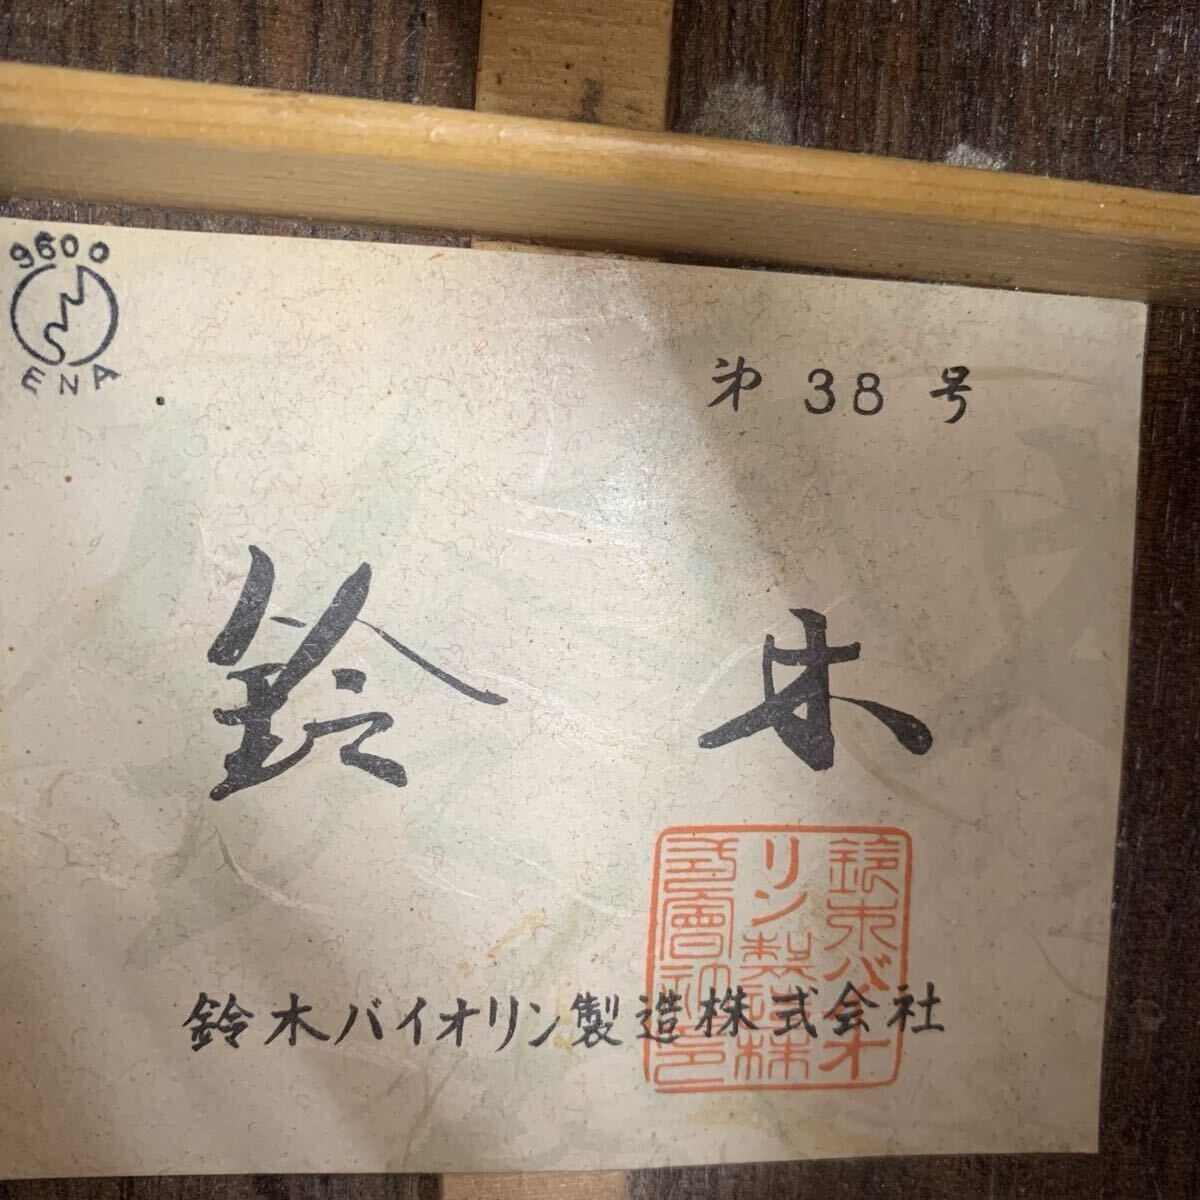 9600
ENA
第 38 号
鈴木
鈴木バイオリン製造株式会社
鈴木バイオ
リン製造株
式會社之印